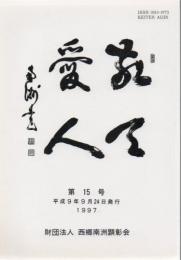 ISSN 0910-8975
KEITEN AIJIN
敬天
愛人
南洲書
第 15 号
平成9年9月24日発行
1997
財団法人 西郷南洲顕彰会